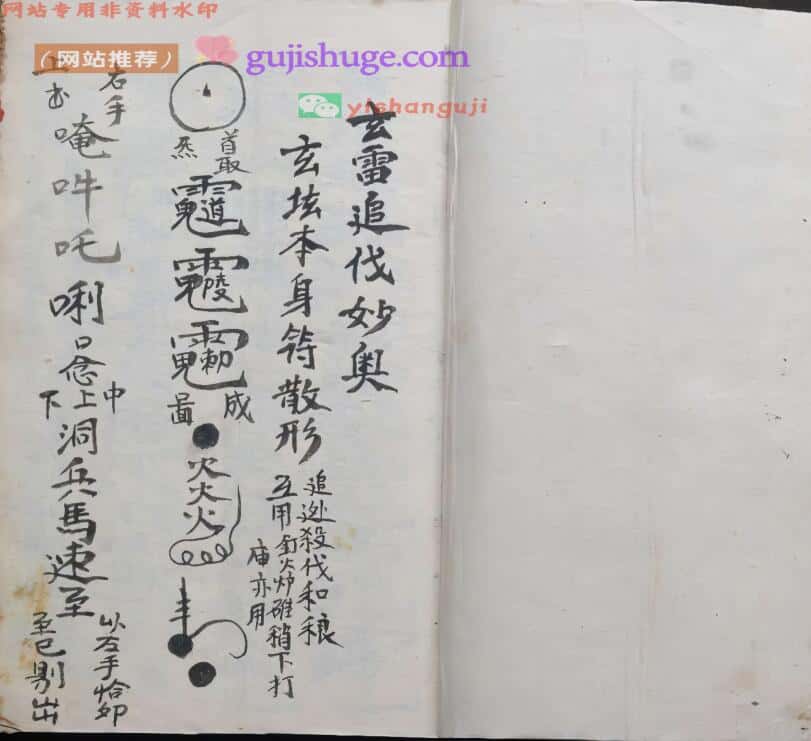 网站专用非资料水印
(网站推荐)
gujishuge.com
yishanguji
玄雷追伐妙奥
玄坛本身符散形
追逊殺伐和
互用釘火炉碓稍下打
庙亦用
首取
炁
成
火炎火
右手
上书
唵吽吒唎
口念
中
上
下
洞兵馬速至
以右手恰卯
至巳剔出